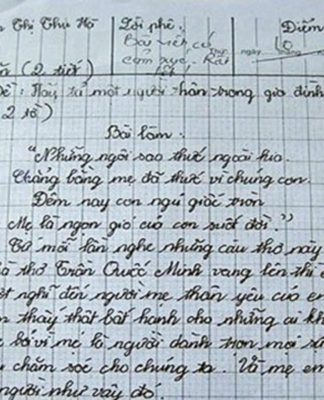 Thị Thu Hà
Lời phê:
Điểm
Bài viết có
cảm xúc. Rất
Thứ ngày tháng
10
(2 tiết)
Hãy tả một người thân trong gia đình
Bài làm:
"Những ngôi sao thức ngoài kia
Chẳng bằng mẹ đã thức vì chúng con
Đêm nay con ngủ giấc tròn
Mẹ là ngọn gió của con suốt đời."
Cứ mỗi lần nghe những câu thơ này
thơ Trần Quốc Minh vang lên thì
nghĩ đến người mẹ thân yêu của em
thấy thật bất hạnh cho những ai
bởi vì mẹ là người dành trọn mọi
chăm sóc cho chúng ta. Và mẹ em
người như vậy đó.